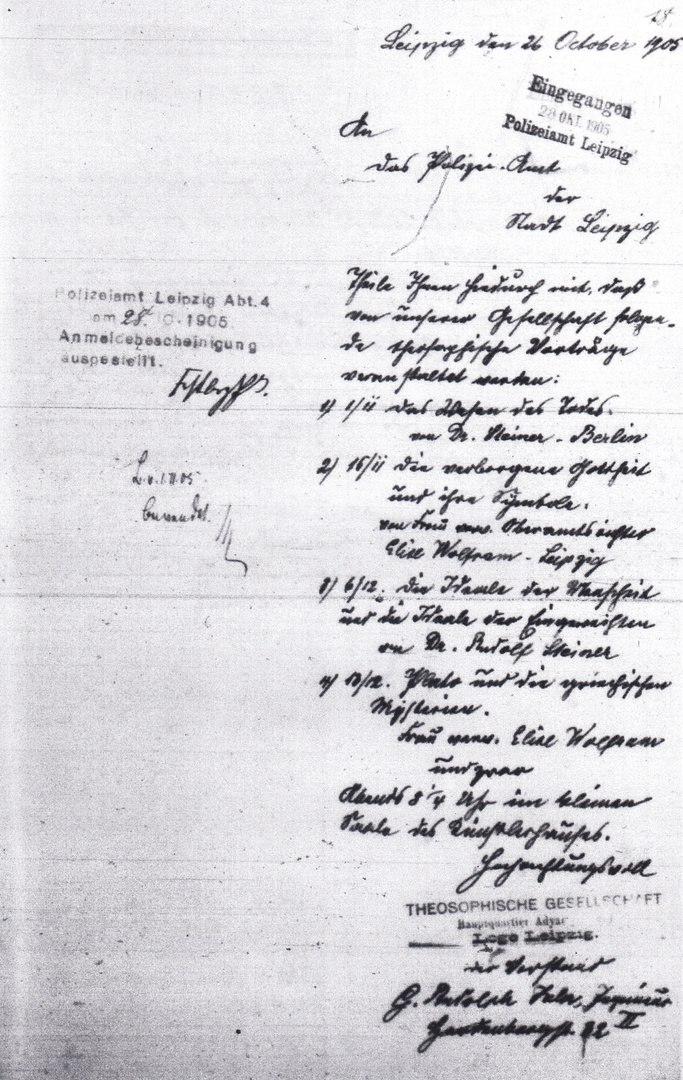 18.
Leipzig den 26 October 1905
Eingegangen
28 OKT. 1905
Polizeiamt Leipzig
An
das Polizei-Amt
der
Stadt Leipzig
Polizeiamt Leipzig Abt. 4
am 28. 10. 1905.
Anmeldebescheinigung
ausgestellt.
Theile Ihnen hiedurch mit, daß
von unserer Gesellschaft folgen-
de theosophische Vorträge
veranstaltet werden:
1) 1/11 Das Wesen des Todes.
von Dr. Steiner - Berlin
2) 15/11 Die verborgene Gottheit
und ihre Symbole.
von Frau verw. Oberamtsrichter
Elise Wolfram - Leipzig
3) 6/12. Die Ideale der Menschheit
und die Ideale der Eingeweihten
von Dr. Rudolf Steiner
4) 13/12. Plato und die griechischen
Mysterien.
Frau verw. Elise Wolfram
und zwar
Abends 8 1/4 Uhr im kleinen
Saale des Künstlerhauses.
Hochachtungsvoll
THEOSOPHISCHE GESELLSCHAFT
Hauptquartier Adyar
Loge Leipzig.
der Vorstand
G. Rudolph Ingenieur
II